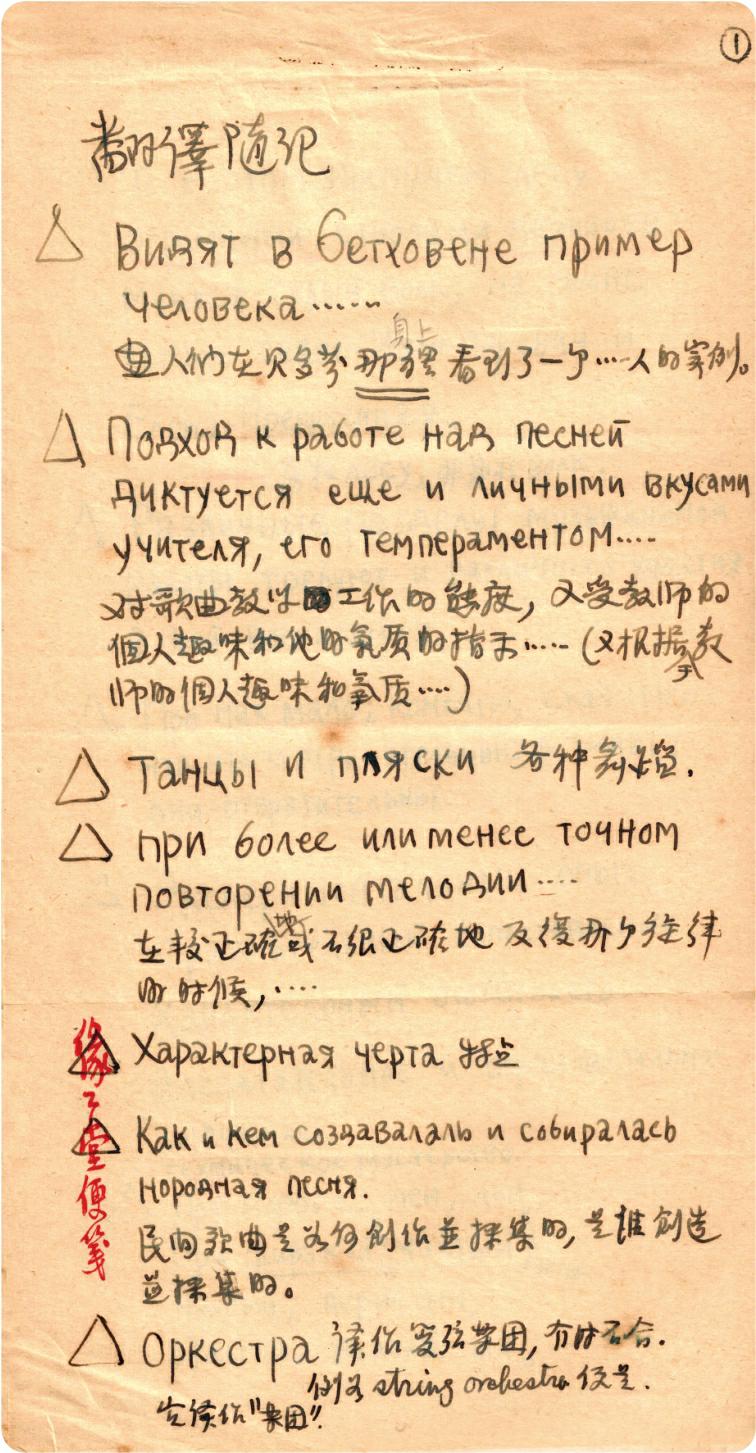 ①
翻译随记
△ Видят в Бетховене пример
человека......
人们在贝多芬那裡看到了一个....人的实例。
身上
△ Подход к работе над песней
диктуется еще и личными вкусами
учителя, его темпераментом....
对歌曲教学工作的态度，又受教师的
個人趣味和他的氣质的指示.....（又根据教
师的個人趣味和氣质....）
△ Танцы и пляски 各种舞蹈.
△ При более или менее точном
повторении мелодии....
在较正確地或不很正確地反復那个旋律
的时候，....
△ Характерная черта 特点
△ Как и кем создавалаль и собиралась
нородная песня.
民间歌曲是如何創作並採集的，是谁創造
並採集的。
△ Оркестра 译作管弦楽团，有时不合.
例如 string orchestra 便是.
应译作"楽团".
緣
堂便箋